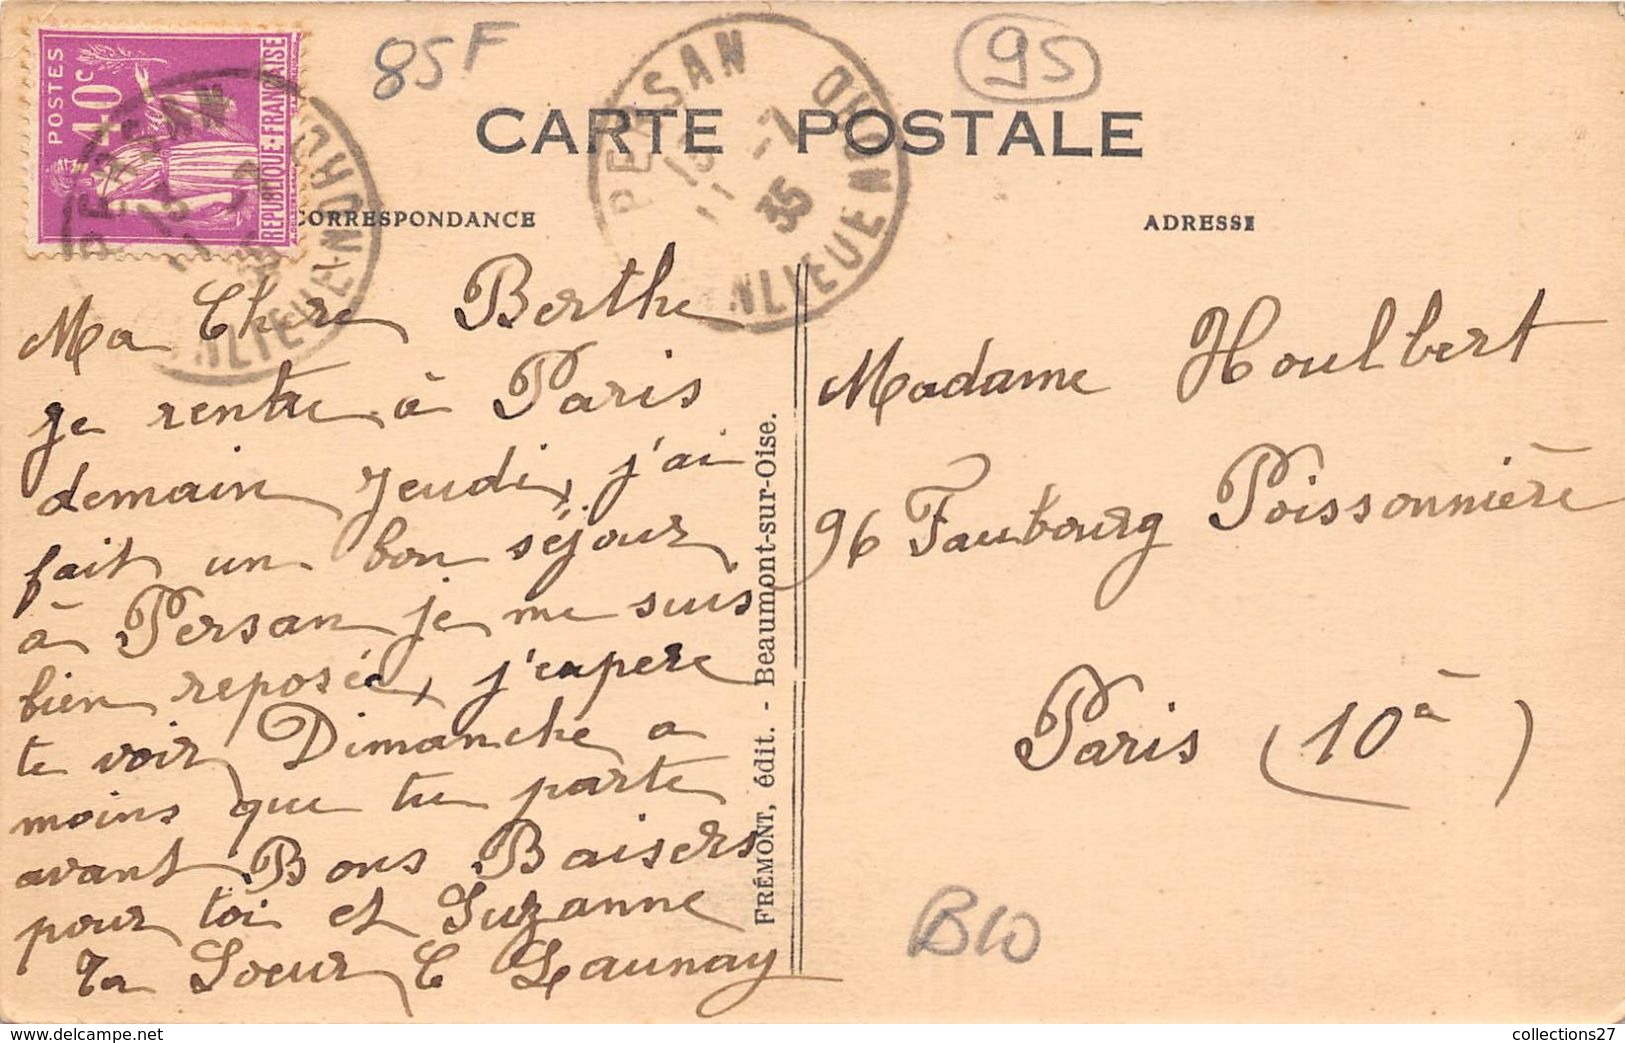 POSTES
40c
REPUBLIQUE·FRANÇAISE
85F
95
PERSAN
BANLIEUE NORD
11 -7
35
CARTE POSTALE
CORRESPONDANCE
ADRESSE
Ma Chere Berthe
je rentre à Paris
demain Jeudi, j'ai
fait un bon séjour
à Persan je me suis
bien reposée, j'espere
te voir Dimanche a
moins que tu parte
avant Bons Baisers
pour toi et Suzanne
Ta Soeur C Launay
FRÉMONT, édit. - Beaumont-sur-Oise.
Madame Houlbert
96 Faubourg Poissonnière
Paris (10à)
B10
collections27